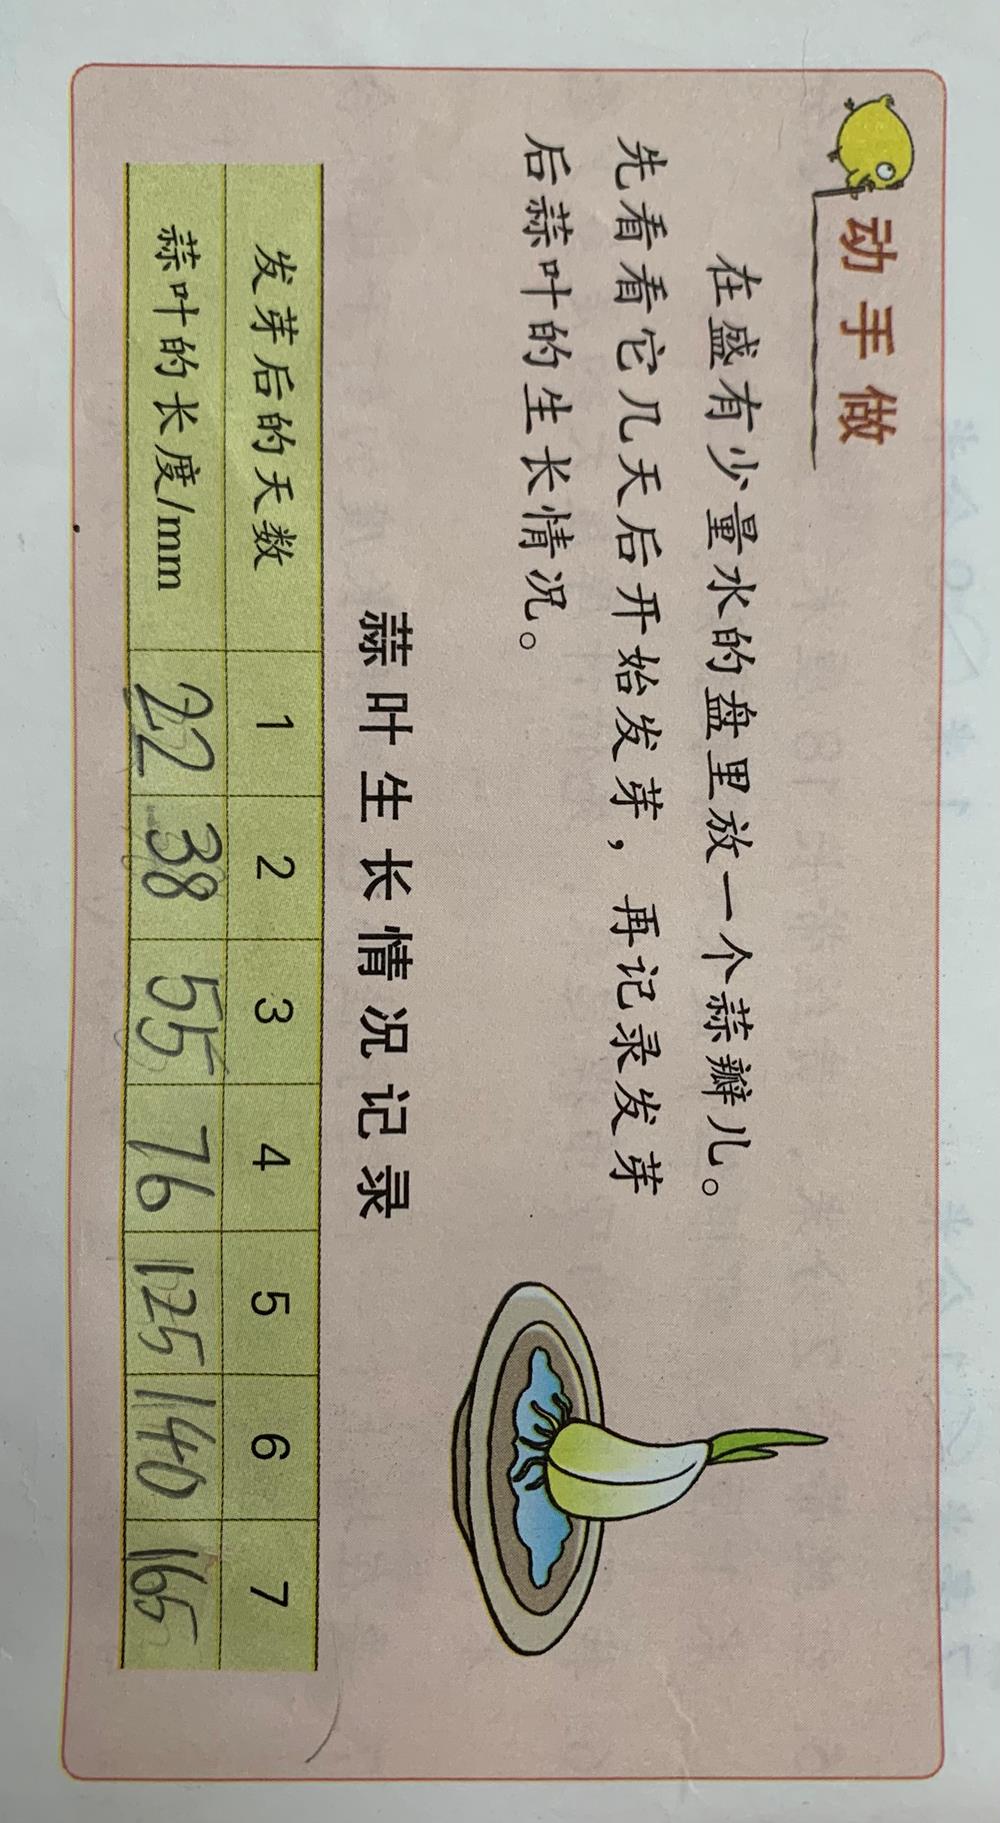 动手做
在盛有少量水的盘里放一个蒜瓣儿。
先看看它几天后开始发芽，再记录发芽
后蒜叶的生长情况。
蒜叶生长情况记录
发芽后的天数 1 2 3 4 5 6 7
蒜叶的长度/mm 22 38 55 76 125 140 165